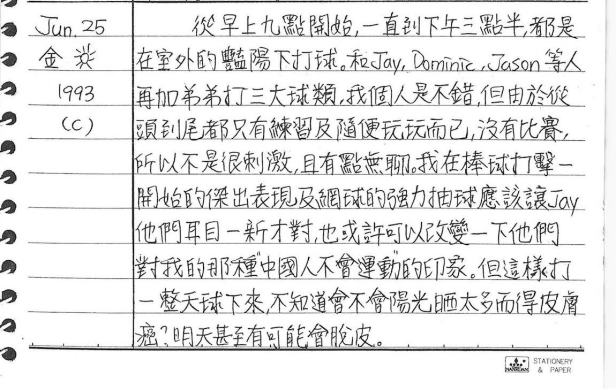 Jun. 25 從早上九點開始,一直到下午三點半,都是
金 炎 在室外的豔陽下打球。和Jay, Dominic, Jason等人
1993 再加弟弟打三大球類,我個人是不錯,但由於從
(C) 頭到尾都只有練習及隨便玩玩而已,沒有比賽,
所以不是很刺激,且有點無聊。我在棒球打擊一
開始的傑出表現及網球的強力抽球應該讓Jay
他們耳目一新才對,也或許可以改變一下他們
對我的那種"中國人不會運動"的印象。但這樣打
一整天球下來,不知道會不會陽光晒太多而得皮膚
癌?明天甚至有可能會脫皮。
STATIONERY
& PAPER